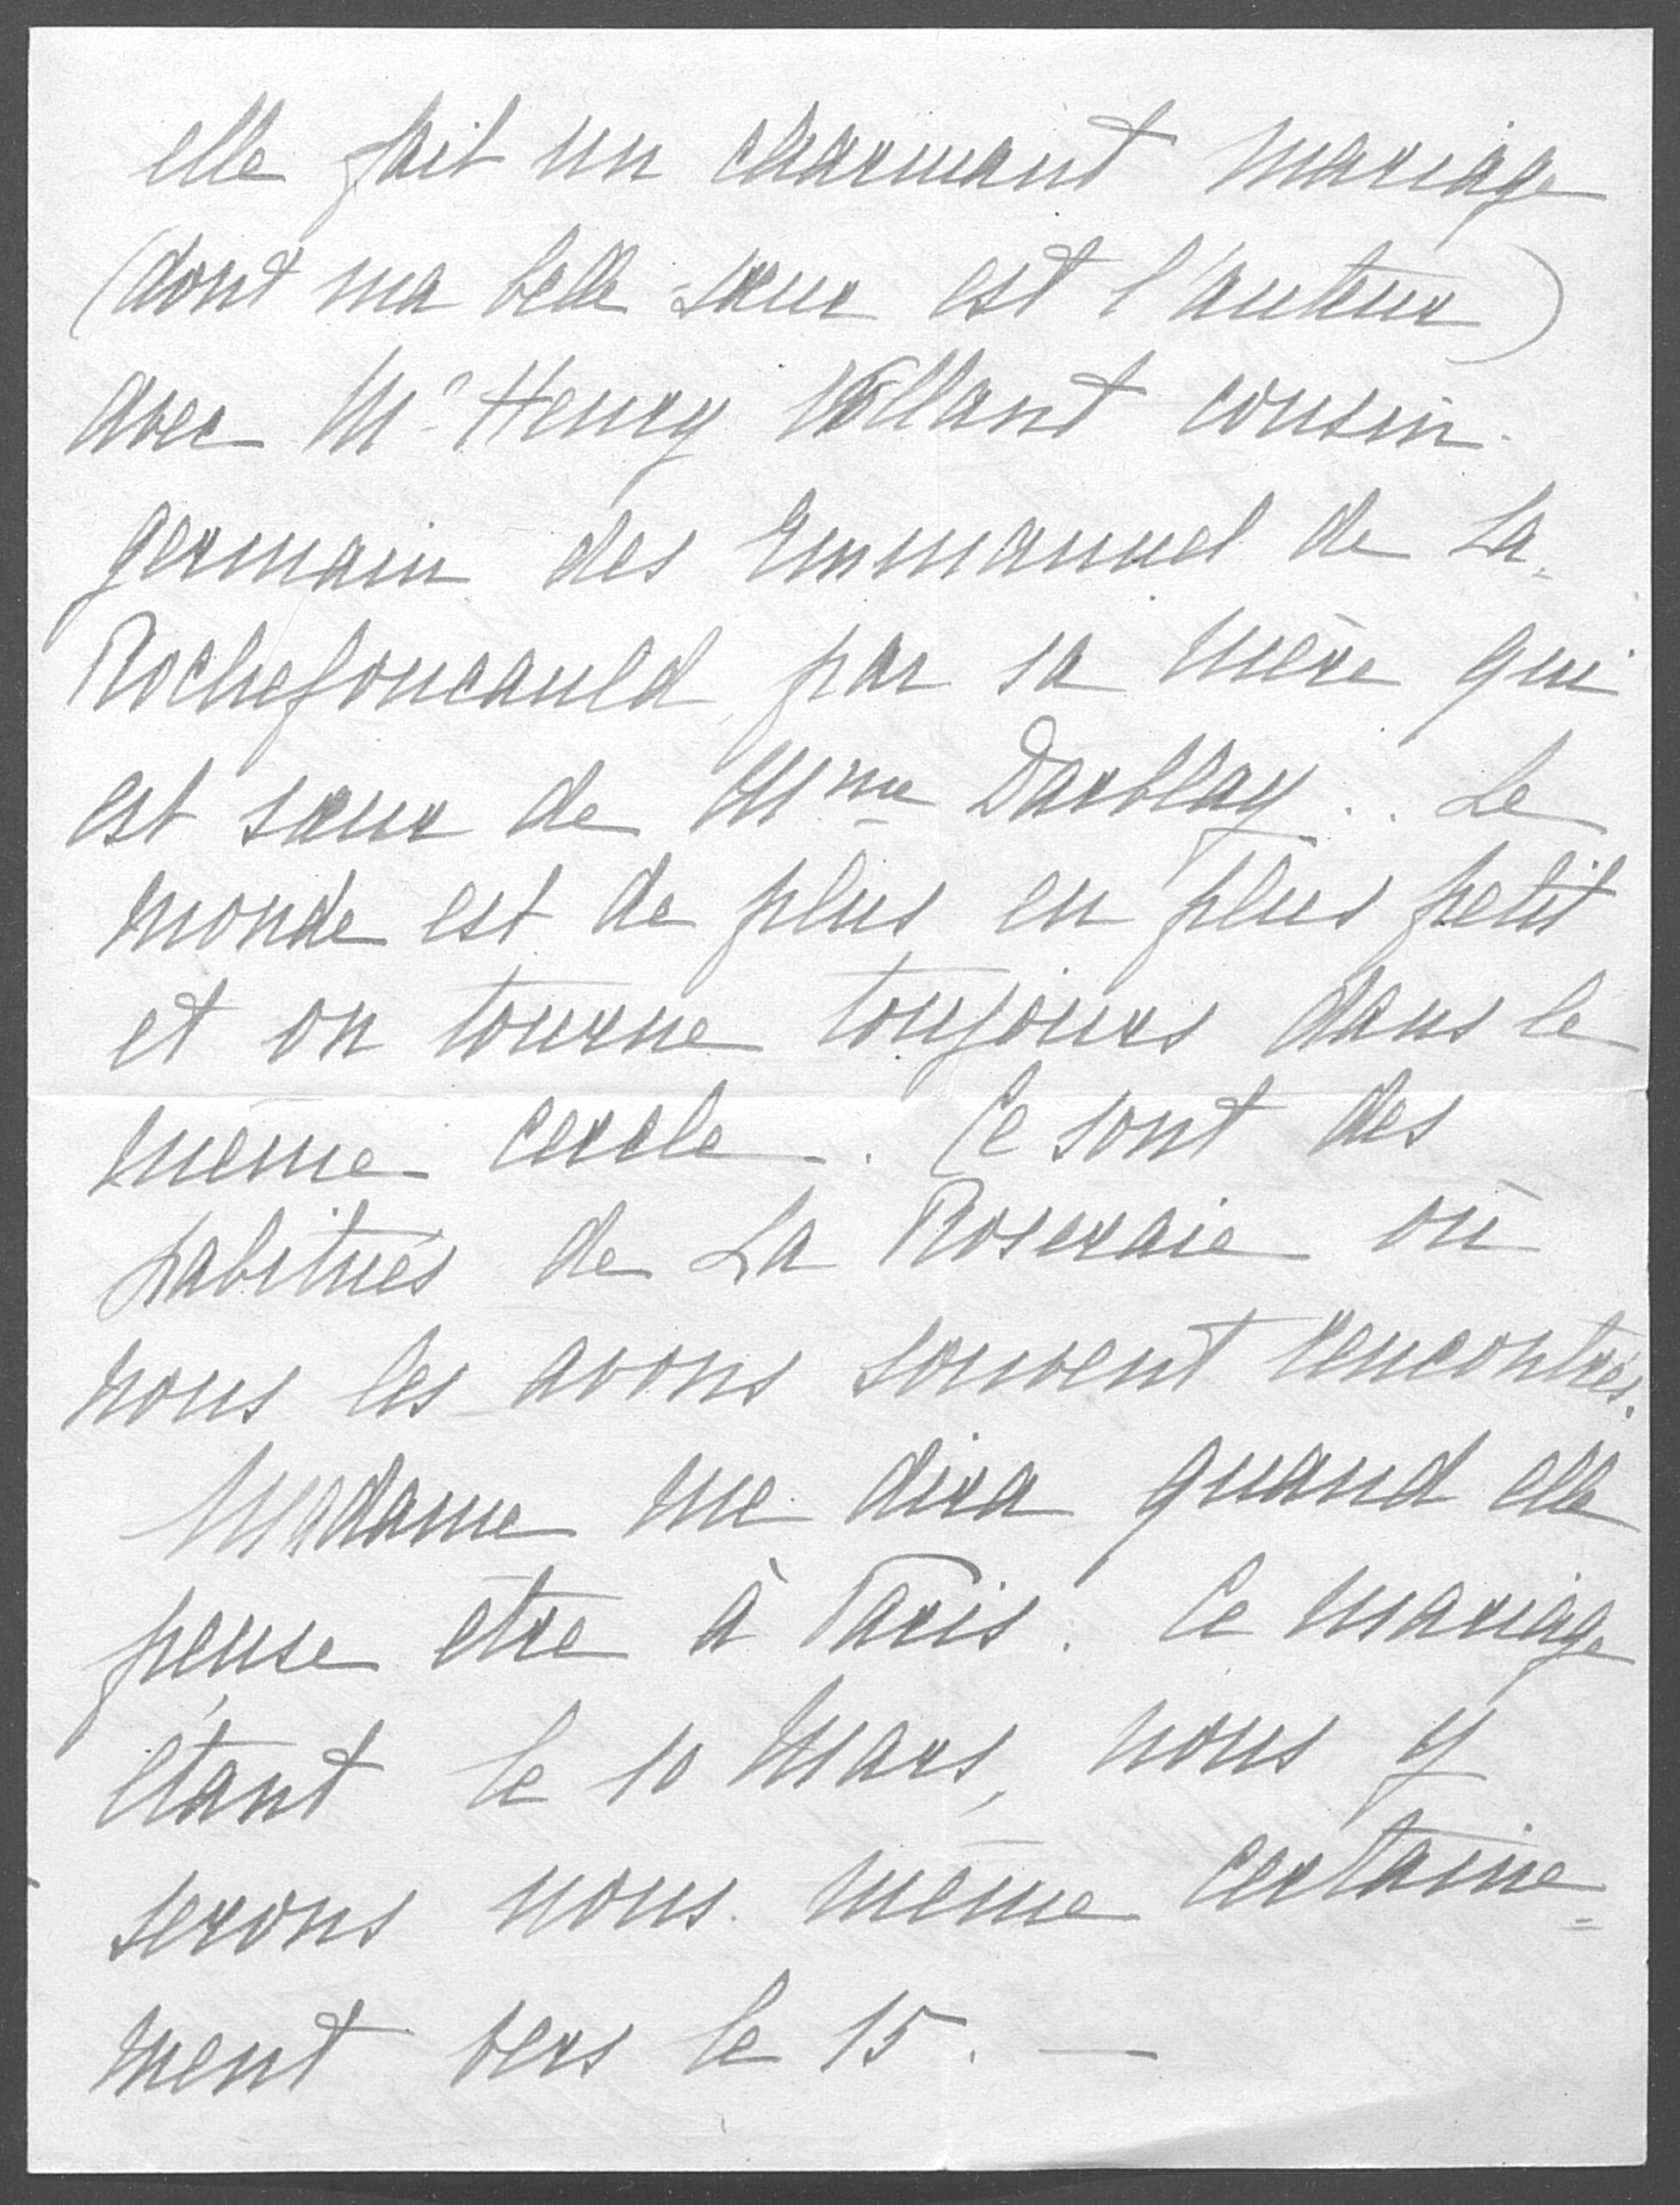 elle fait un charmant mariage
(dont ma belle-sœur est l'auteur)
avec Mr Henry Vollant cousin
germain des Emmanuel de La-
Rochefoucauld, par sa mère qui
est sœur de Mme Darblay.. Le
monde est de plus en plus petit
et on tourne toujours dans le
même cercle. Ce sont des
habitués de La Roseraie où
nous les avons souvent rencontrés.
Madame me dira quand elle
pense etre à Paris. Ce mariage
étant le 10 Mars, nous y
serons nous même certaine=
ment vers le 15. —